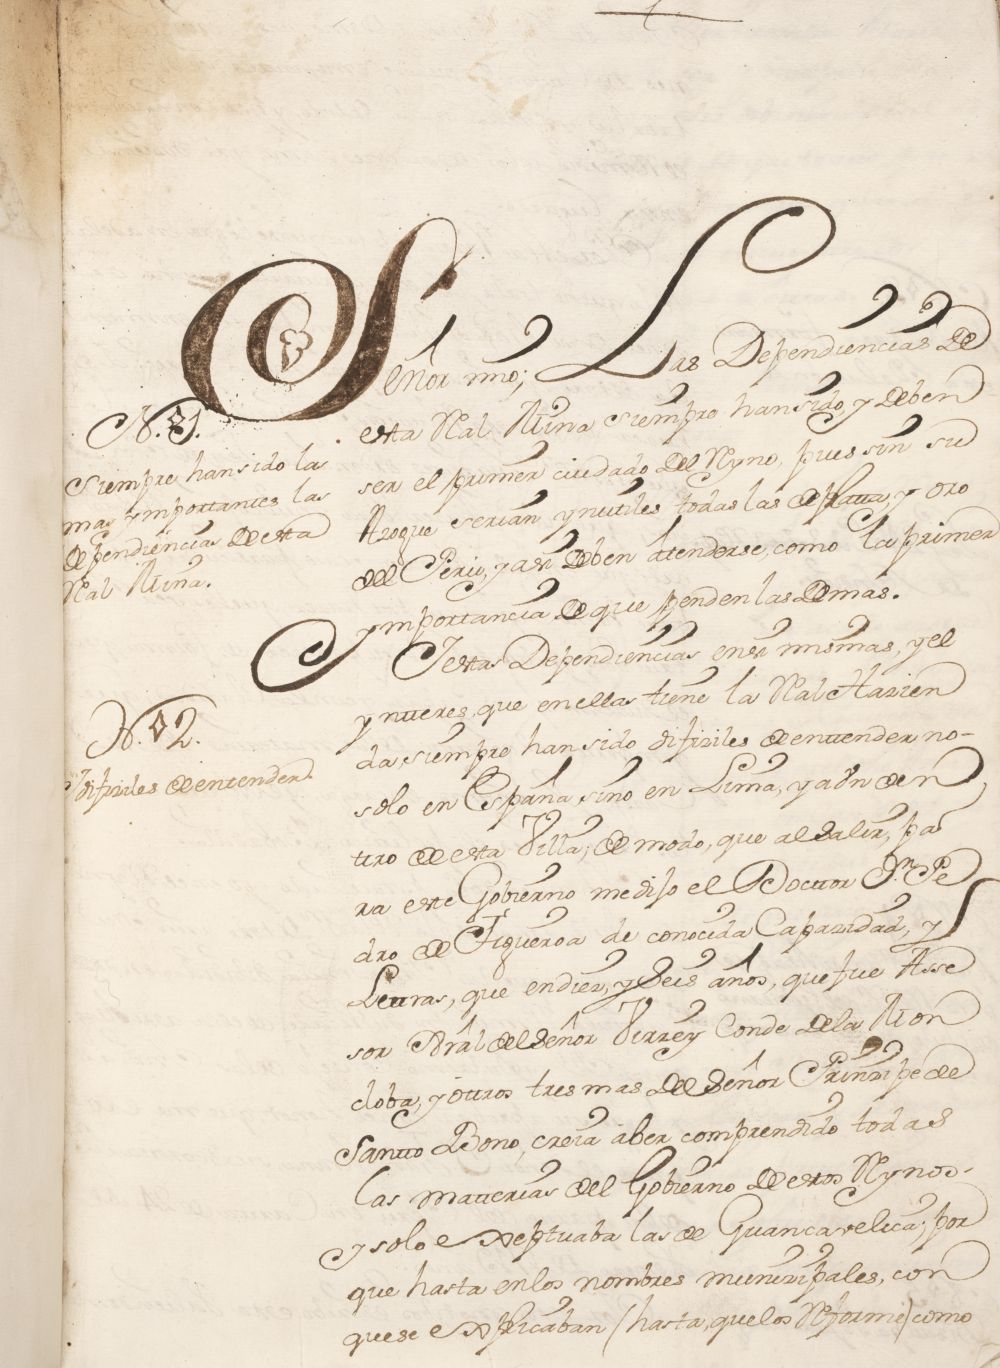 Señor mio; Las Dependiencias de
N.º 1.
Siempre han sido las
mas ymportantes las
dependiencias de esta
Ral Mina.
esta Ral Mina siempre han sido, y deben
ser el primer ciudado del Ryno, pues sin su
Azogue serian ynutiles todas las de platta, y oro
del Peru, y asi deben attenderse, como la primer
ymportancia de que penden las demas.
Yestas Dependiencias en si mismas, y el
ynteres, que en ellas tiene la Ral Hazien
da siempre han sido difiziles de entender no-
solo en España, sino en Lima, y aun den
tro de esta Villa; de modo, que al salir, pa
ra este Gobierno me dijo el Doctor Dn. Pe
dro de Figueroa de conocida Capazidad, y
Letras, que en diez, y seis años, que fue Asse
sor Gral del señor Virrey Conde de la Mon
cloba, y otros tres mas del señor Prinzipe de
Santto Bono, creia aber comprendido todas
las matterias del Gobierno de estos Rynos-
y solo exseptuaba las de Guancavelica; por
que hasta en los nombres munizipales, con
que se explicaban (hasta, que los Reforme) como
N.º 2.
Difiziles de entender.